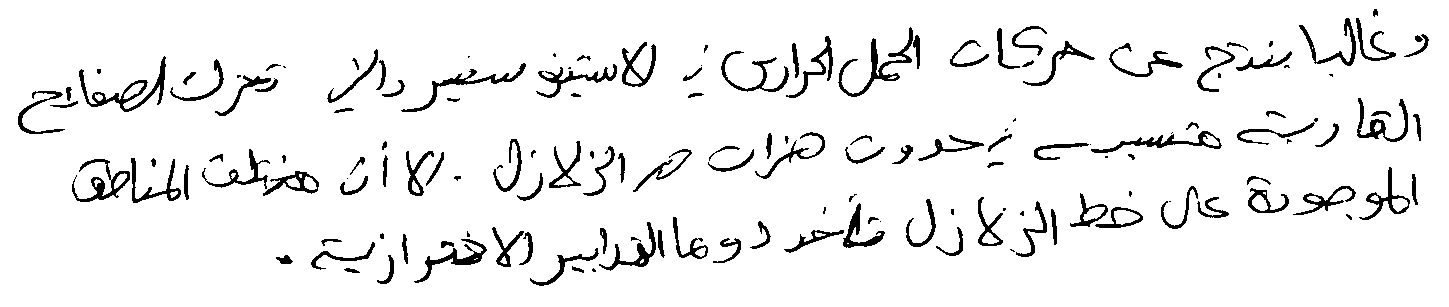 وغالبا ينتج عن حركات الحمل الحراري في الاستينو سفير والى تحرك الصفائح
القارية متسببة في حدوث هزات من الزلازل . الا أن مختلف المناطق
الموجودة على خط الزلازل تأخد دوما التدابير الاحترازية .